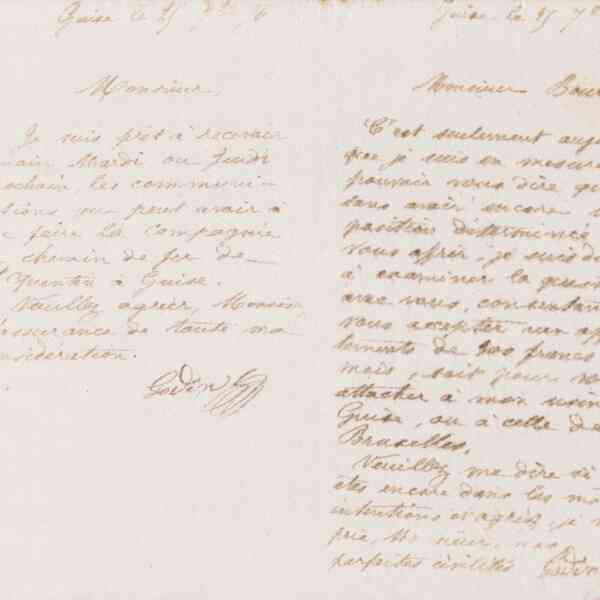 Guise le 25
Monsieur,
Je suis prêt à recevoir
main Mardi ou Jeudi
ochain, les communi-
tions que peut avoir à
e faire la compagnie
chemin de fer de
t Quentin à Guise.
Veuillez agréer, Monsieu
assurance de toute ma
nsidération.
Godin
Guise, le 25 7
Monsieur Bour
C'est seulement aujo
que je suis en mesure
pouvoir vous dire qu
sans avoir encore
position déterminée
vous offrir, je suis di
à examiner la ques
avec vous, consentan
vous accepter aux app
tements de 300 francs
mois, soit pour vo
attacher à mon usin
Guise, ou à celle de
Bruxelles.
Veuillez me dire si
êtes encore dans les mê
intentions et agréez, je v
prie, Mr
parfaites civilités Godin